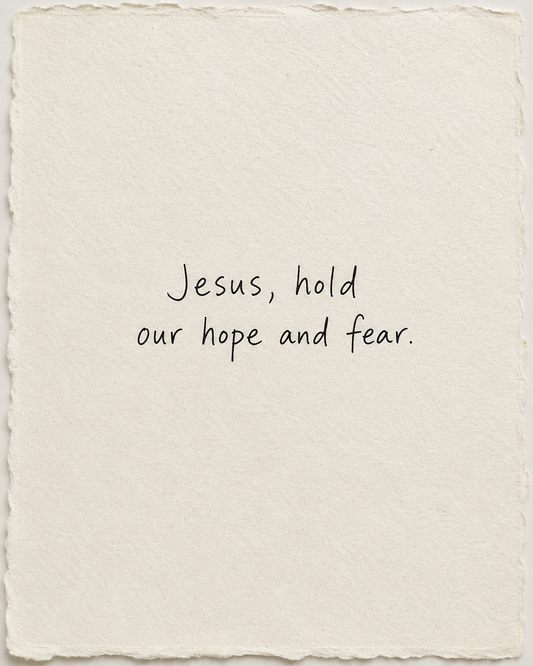 Jesus, hold
our hope and fear.